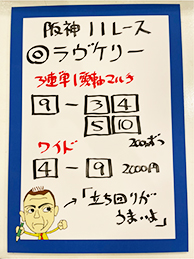 阪神11レース
◎ラヴケリー
3連単1頭軸マルチ
9-34
510
200円ずつ
ワイド
4-9 2000円
→「立ち回りが
うまいよ」